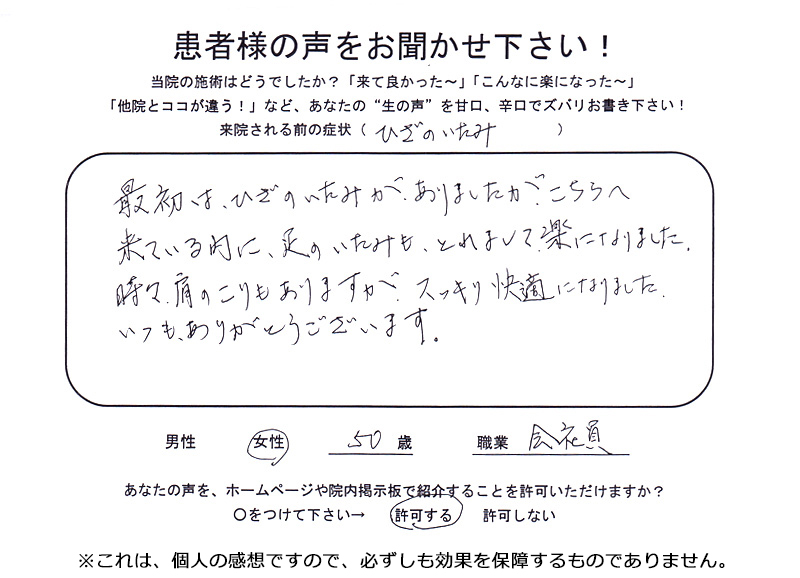 患者様の声をお聞かせ下さい！
当院の施術はどうでしたか？「来て良かった～」「こんなに楽になった～」
「他院とココが違う！」など、あなたの“生の声”を甘口、辛口でズバリお書き下さい！
来院される前の症状（ ひざのいたみ ）
最初は、ひざのいたみが、ありましたが、こちらへ
来ている内に、足のいたみも、とれまして、楽になりました。
時々、肩のこりもありますが、スッキリ快適になりました。
いつも、ありがとうございます。
男性 女性 50 歳 職業 会社員
あなたの声を、ホームページや院内掲示板で紹介することを許可いただけますか？
〇をつけて下さい→ 許可する 許可しない
※これは、個人の感想ですので、必ずしも効果を保障するものでありません。